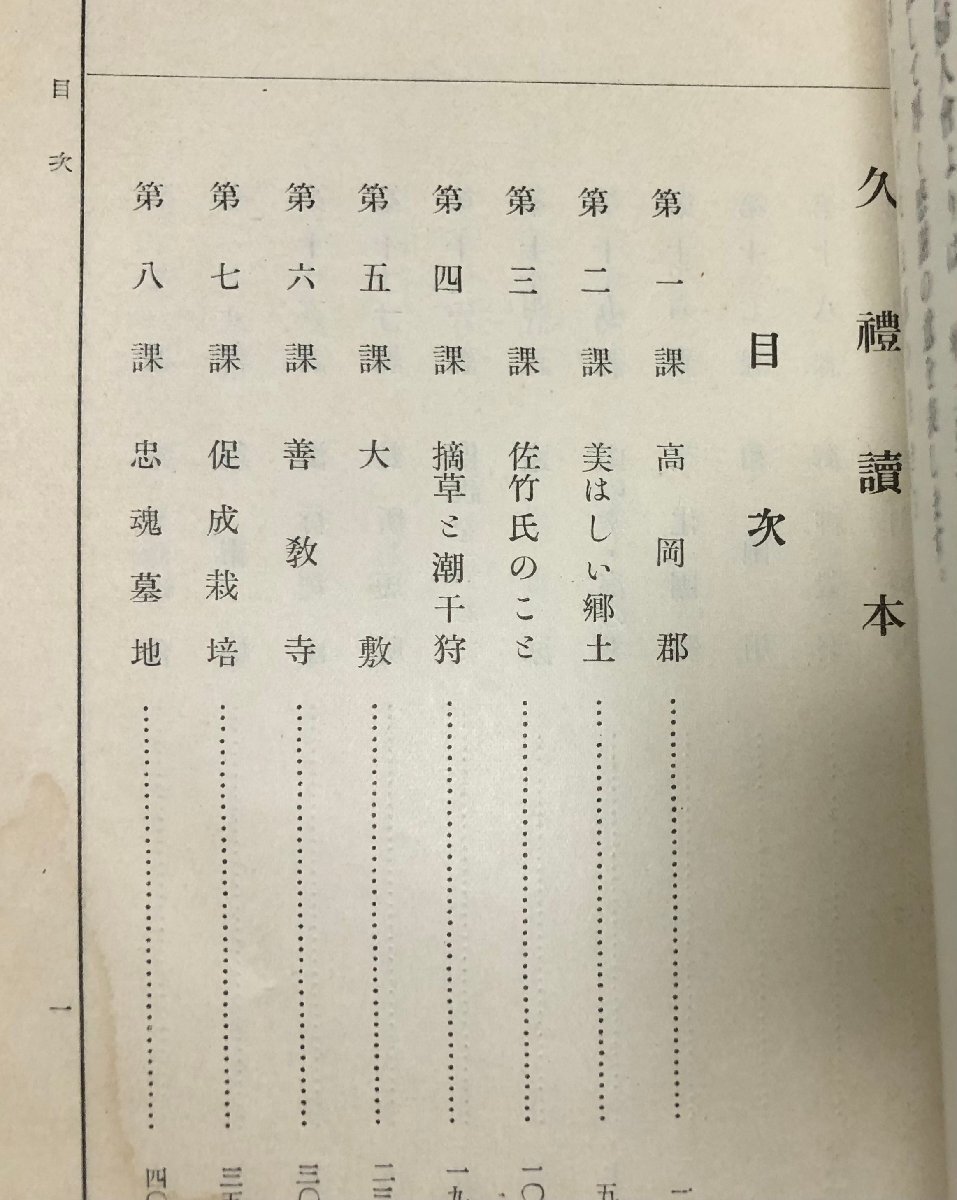 久禮讀本
目次
第一課 高岡郡……………………一
第二課 美はしい郷土……………………五
第三課 佐竹氏のこと……………………一〇
第四課 摘草と潮干狩……………………一九
第五課 大敷……………………二三
第六課 善教寺……………………三〇
第七課 促成栽培……………………三五
第八課 忠魂墓地……………………四〇
目次
一